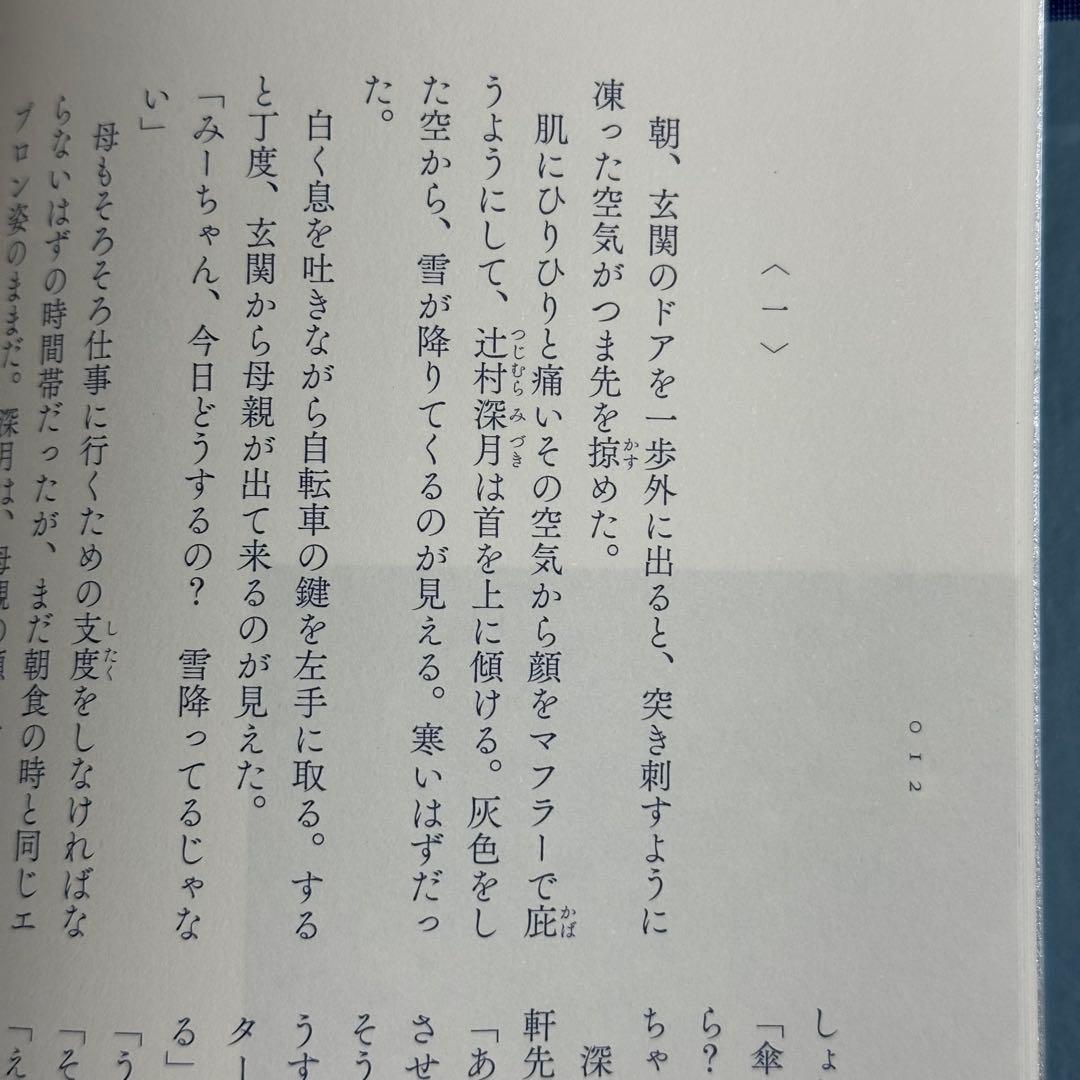 〈一〉
朝、玄関のドアを一歩外に出ると、突き刺すように
凍った空気がつま先を掠めた。
かす
肌にひりひりと痛いその空気から顔をマフラーで庇
かば
うようにして、辻村深月は首を上に傾ける。灰色をし
つじむらみづき
た空から、雪が降りてくるのが見える。寒いはずだっ
た。
白く息を吐きながら自転車の鍵を左手に取る。する
と丁度、玄関から母親が出て来るのが見えた。
「みーちゃん、今日どうするの？　雪降ってるじゃな
い」
母もそろそろ仕事に行くための支度をしなければな
したく
らないはずの時間帯だったが、まだ朝食の時と同じエ
プロン姿のままだ。深月は、母親の
012
しょ
「傘
ら？
ちゃ
深
軒先
「あ
させ
そう
うす
ター
る」
「う
「そ
「え